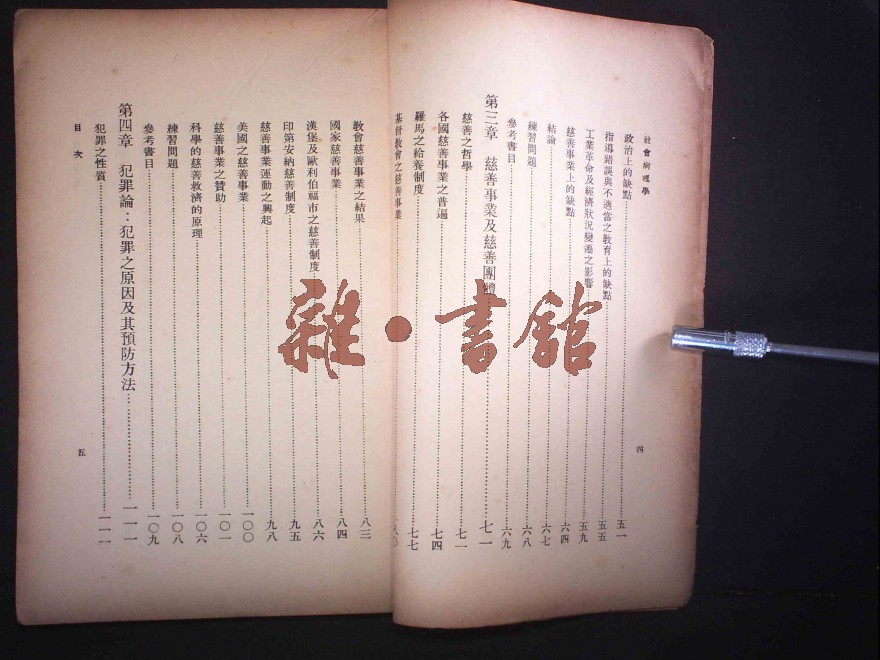 社會病理學
政治上的缺點…五一
指導錯誤與不適當之教育上的缺點…五五
工業革命及經濟狀況變遷之影響…五九
慈善事業上的缺點…六四
結論…六七
練習問題…六八
參考書目…六九
第三章 慈善事業及慈善團體…七一
慈善之哲學…七一
各國慈善事業之普遍…七四
羅馬之給養制度…七七
基督教會之慈善事業…八〇
四
教會慈善事業之結果…八三
國家慈善事業…八四
漢堡及歐利伯福市之慈善制度…八六
印第安納慈善制度…九五
慈善事業運動之興起…九八
美國之慈善事業…一〇〇
慈善事業之贊助…一〇一
科學的慈善救濟的原理…一〇六
練習問題…一〇八
參考書目…一〇九
第四章 犯罪論：犯罪之原因及其預防方法…一一一
犯罪之性質…一一一
目次
五
雜·書館